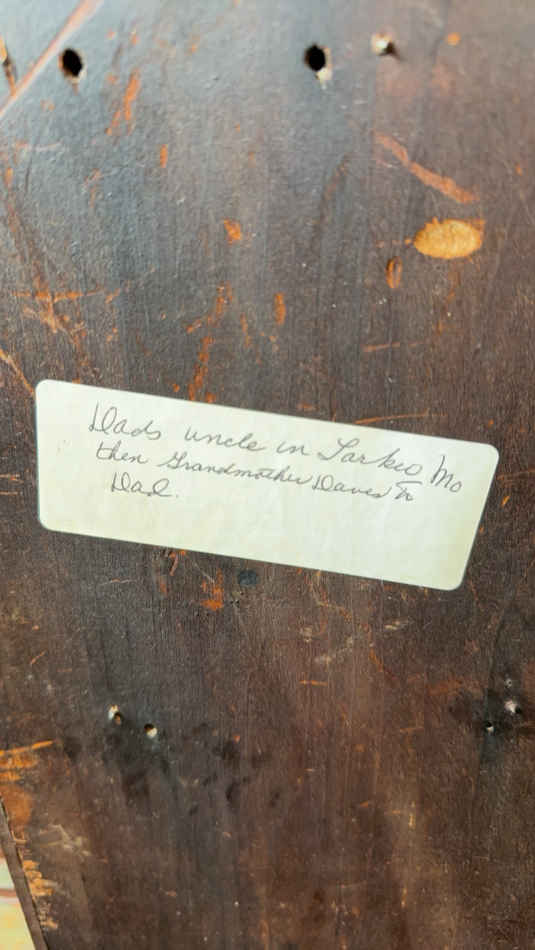 Dads uncle in Tarkio Mo
then Grandmother Daves to
Dad.